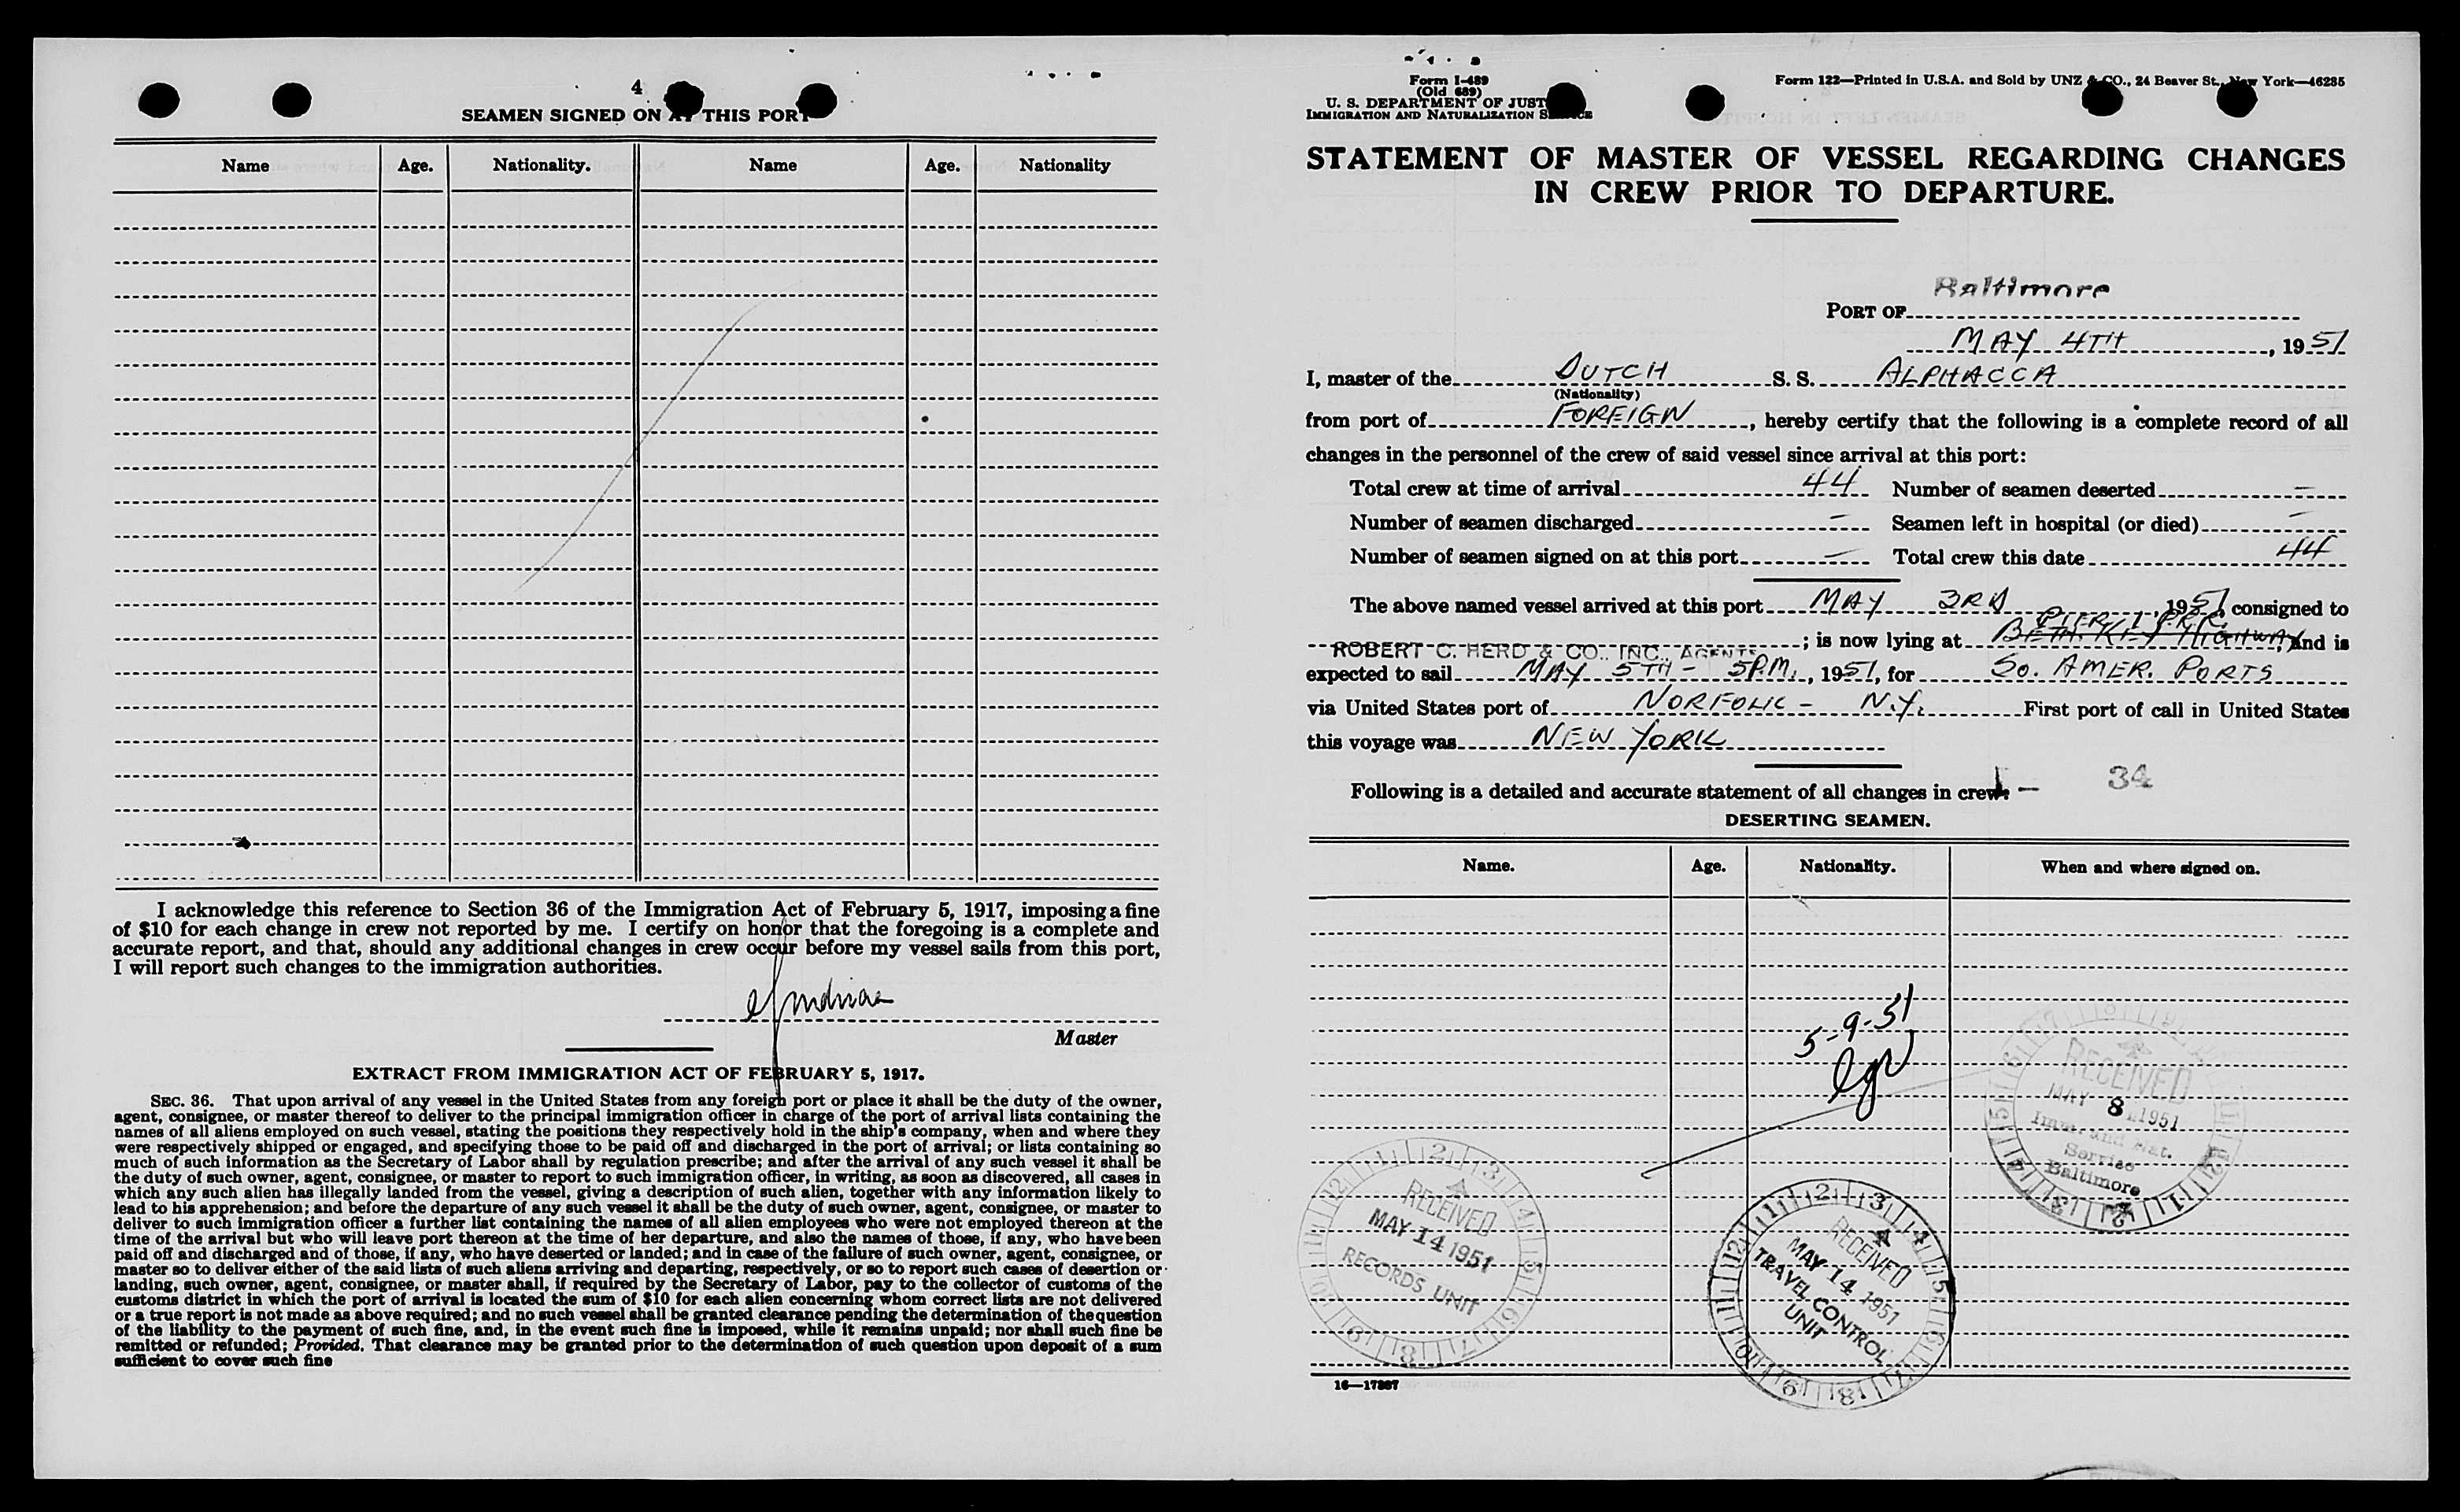 4
SEAMEN SIGNED ON AT THIS PORT
Name Age. Nationality. Name Age. Nationality
I acknowledge this reference to Section 36 of the Immigration Act of February 5, 1917, imposing a fine
of $10 for each change in crew not reported by me. I certify on honor that the foregoing is a complete and
accurate report, and that, should any additional changes in crew occur before my vessel sails from this port,
I will report such changes to the immigration authorities.
Master
EXTRACT FROM IMMIGRATION ACT OF FEBRUARY 5, 1917.
SEC. 36. That upon arrival of any vessel in the United States from any foreign port or place it shall be the duty of the owner,
agent, consignee, or master thereof to deliver to the principal immigration officer in charge of the port of arrival lists containing the
names of all aliens employed on such vessel, stating the positions they respectively hold in the ship's company, when and where they
were respectively shipped or engaged, and specifying those to be paid off and discharged in the port of arrival; or lists containing so
much of such information as the Secretary of Labor shall by regulation prescribe; and after the arrival of any such vessel it shall be
the duty of such owner, agent, consignee, or master to report to such immigration officer, in writing, as soon as discovered, all cases in
which any such alien has illegally landed from the vessel, giving a description of such alien, together with any information likely to
lead to his apprehension; and before the departure of any such vessel it shall be the duty of such owner, agent, consignee, or master to
deliver to such immigration officer a further list containing the names of all alien employees who were not employed thereon at the
time of the arrival but who will leave port thereon at the time of her departure, and also the names of those, if any, who have been
paid off and discharged and of those, if any, who have deserted or landed; and in case of the failure of such owner, agent, consignee, or
master so to deliver either of the said lists of such aliens arriving and departing, respectively, or so to report such cases of desertion or
landing, such owner, agent, consignee, or master shall, if required by the Secretary of Labor, pay to the collector of customs of the
customs district in which the port of arrival is located the sum of $10 for each alien concerning whom correct lists are not delivered
or a true report is not made as above required; and no such vessel shall be granted clearance pending the determination of the question
of the liability to the payment of such fine, and, in the event such fine is imposed, while it remains unpaid; nor shall such fine be
remitted or refunded; Provided, That clearance may be granted prior to the determination of such question upon deposit of a sum
sufficient to cover such fine
Form I-489
(Old 689)
U. S. DEPARTMENT OF JUSTICE
IMMIGRATION AND NATURALIZATION SERVICE
Form 122—Printed in U.S.A. and Sold by UNZ & CO., 24 Beaver St., New York—46285
STATEMENT OF MASTER OF VESSEL REGARDING CHANGES
IN CREW PRIOR TO DEPARTURE.
PORT OF Baltimore
MAY 4TH, 1951
I, master of the DUTCH S. S. ALPHACCA
(Nationality)
from port of FOREIGN, hereby certify that the following is a complete record of all
changes in the personnel of the crew of said vessel since arrival at this port:
Total crew at time of arrival 44 Number of seamen deserted —
Number of seamen discharged — Seamen left in hospital (or died) —
Number of seamen signed on at this port — Total crew this date 44
The above named vessel arrived at this port MAY 3RD, 1951 consigned to
PIER 1 P.R.R.
ROBERT C. HERD & CO., INC., AGENTS; is now lying at BETH. KEY HIGHWAY, and is
expected to sail MAY 5TH - 5P.M., 1951, for SO. AMER. PORTS
via United States port of NORFOLK - N.Y. First port of call in United States
this voyage was NEW YORK
Following is a detailed and accurate statement of all changes in crew: — 34
DESERTING SEAMEN.
Name. Age. Nationality. When and where signed on.
5-9-51
RECEIVED
MAY 8 1951
Imm. and Nat.
Service
Baltimore
RECEIVED
MAY 14 1951
RECORDS UNIT
RECEIVED
MAY 14 1951
TRAVEL CONTROL
UNIT
16—17367